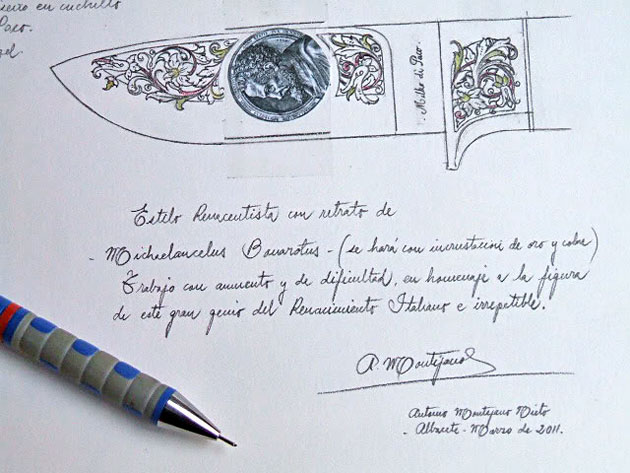 en cuchillo
Paco.
di Paco.
Estilo Renacentista con retrato de
- Michaelancelus Bonarotus - (se hará con incrustación de oro y cobre)
Trabajo con aumento y de dificultad, en homenaje a la figura
de este gran genio del Renacimiento Italiano e irrepetible.
A. Montejano
Antonio Montejano Nieto
- Albacete - Marzo de 2011.